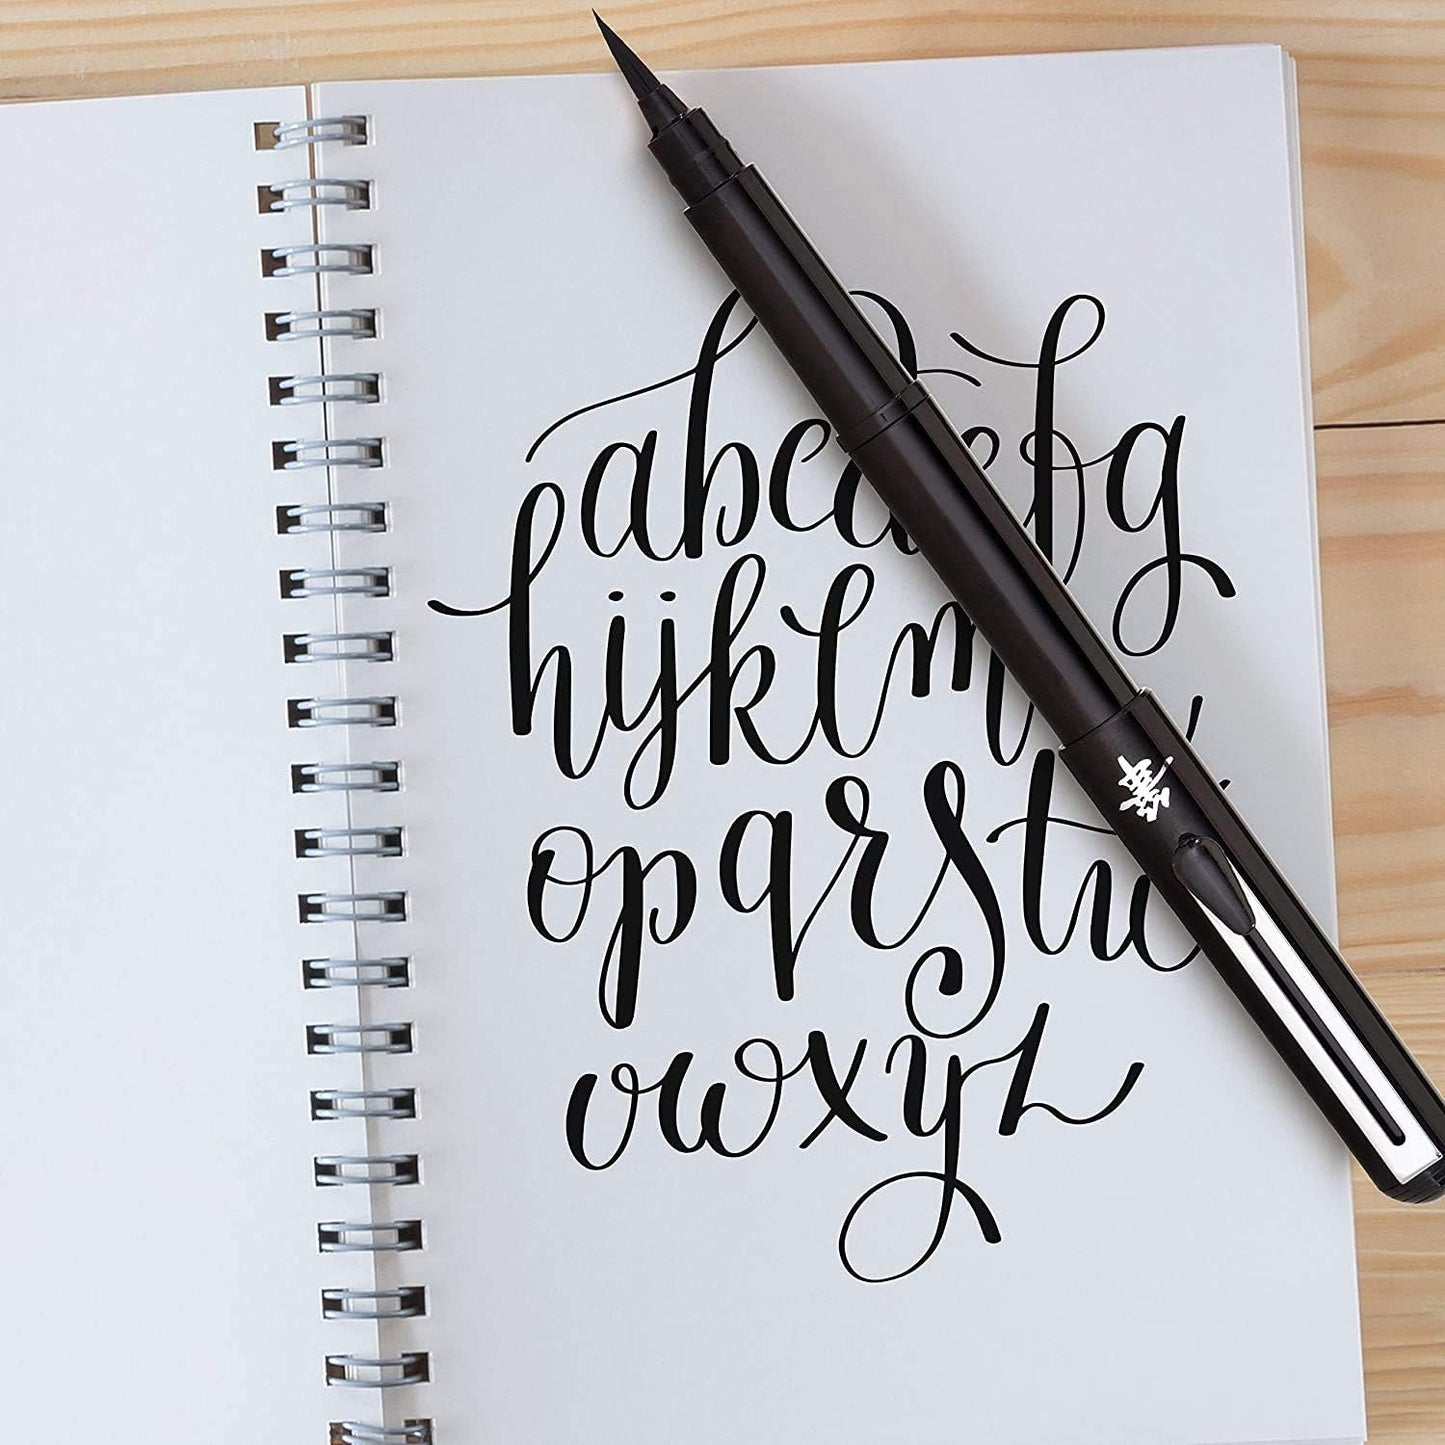 abcdefg
hijklm
opqrstu
vwxyz